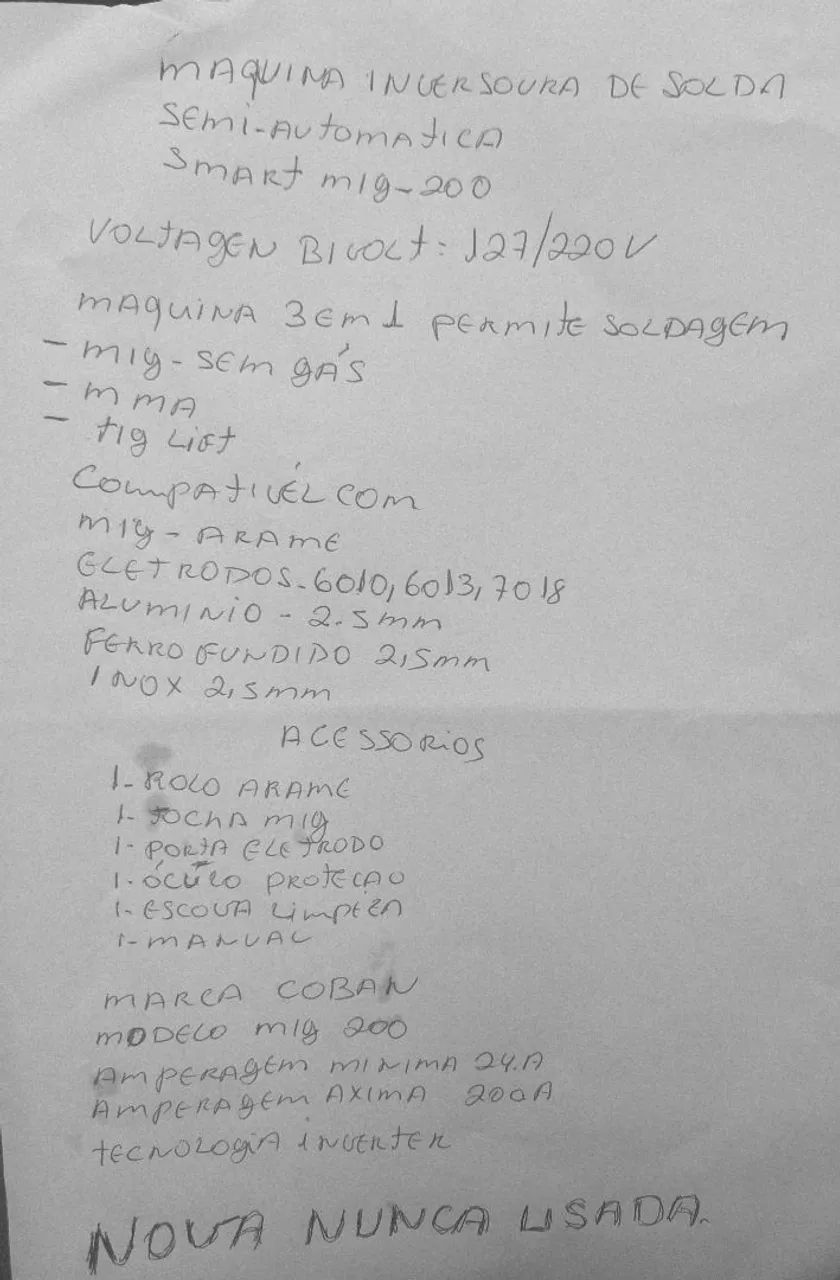 MAQUINA INVERSOURA DE SOLDA
SEMI-AUTOMATICA
SMART MIG-200
VOLTAGEN BIVOLT: 127/220V
MAQUINA 3 EM 1 PERMITE SOLDAGEM
- MIG-SEM GÁS
- MMA
- TIG LIFT
COMPATIVÉL COM
MIG - ARAME
ELETRODOS-6010, 6013, 7018
ALUMINIO - 2.5mm
FERRO FUNDIDO 2,5mm
INOX 2,5mm
ACESSORIOS
1- ROLO ARAME
1- TOCHA MIG
1- PORTA ELETRODO
1- ÓCULO PROTEÇAO
1- ESCOVA LIMPEZA
1- MANUAL
MARCA COBAN
MODELO MIG 200
AMPERAGEM MINIMA 24.A
AMPERAGEM AXIMA 200A
TECNOLOGIA INVERTER
NOVA NUNCA USADA.